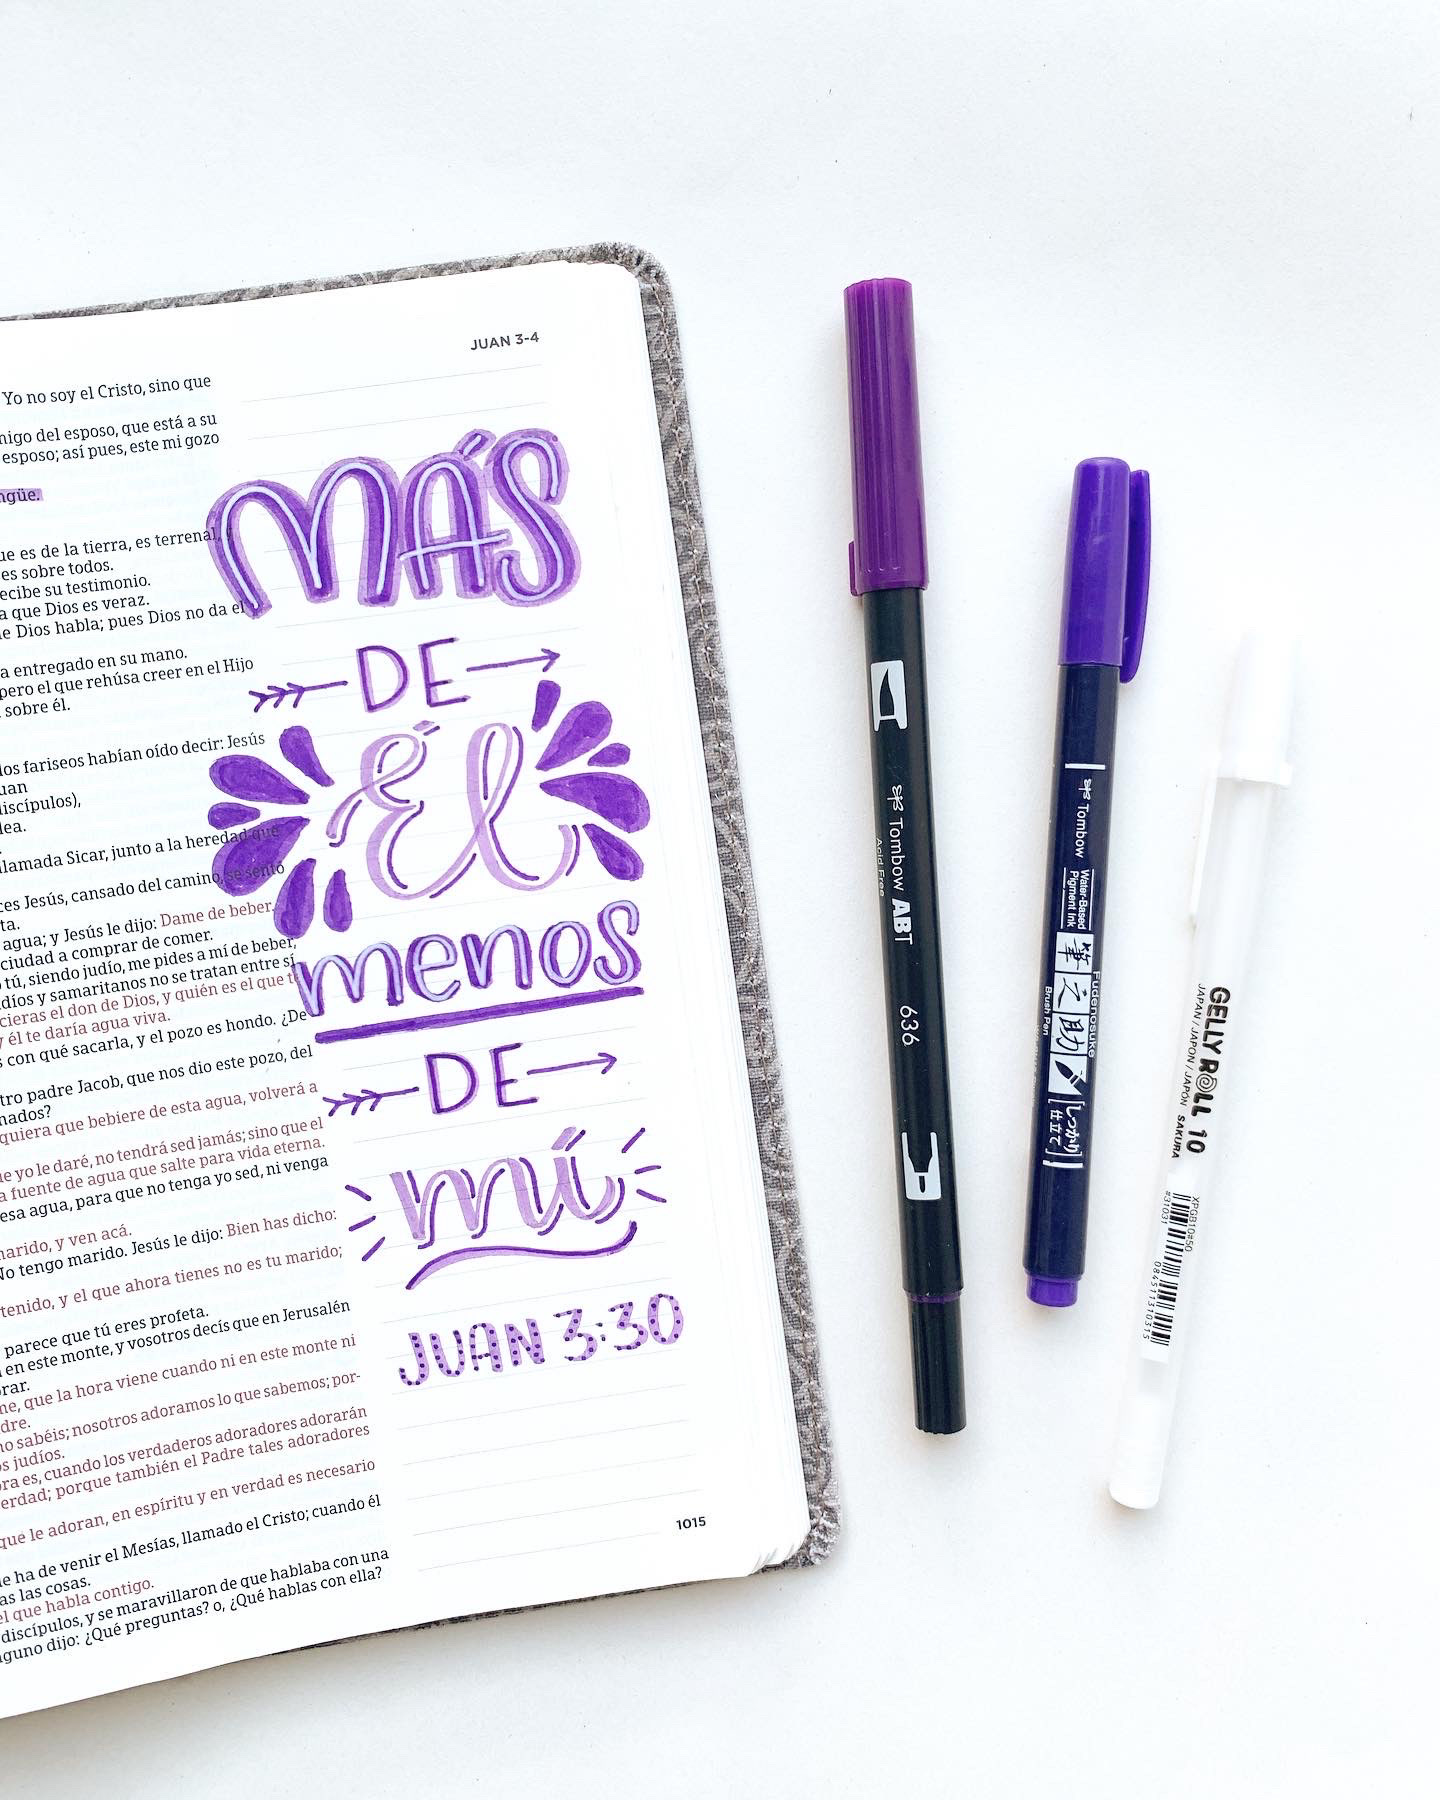 JUAN 3-4
Yo no soy el Cristo, sino que
del esposo, que está a su
esposo; así pues, este mi gozo
que es de la tierra, es terrenal, y
es sobre todos.
recibe su testimonio.
a que Dios es veraz.
Dios habla; pues Dios no da el
a entregado en su mano.
pero el que rehúsa creer en el Hijo
sobre él.
los fariseos habían oído decir: Jesús
discípulos),
llamada Sicar, junto a la heredad que
Jesús, cansado del camino, se sentó
agua; y Jesús le dijo: Dame de beber.
ciudad a comprar de comer.
tú, siendo judío, me pides a mí de beber,
y samaritanos no se tratan entre sí.
el don de Dios, y quién es el que
y él te daría agua viva.
con qué sacarla, y el pozo es hondo. ¿De
padre Jacob, que nos dio este pozo, del
que bebiere de esta agua, volverá a
yo le daré, no tendrá sed jamás; sino que el
fuente de agua que salte para vida eterna.
esa agua, para que no tenga yo sed, ni venga
marido, y ven acá.
No tengo marido. Jesús le dijo: Bien has dicho:
tenido, y el que ahora tienes no es tu marido;
parece que tú eres profeta.
en este monte, y vosotros decís que en Jerusalén
que la hora viene cuando ni en este monte ni
no sabéis; nosotros adoramos lo que sabemos; por-
judíos.
es, cuando los verdaderos adoradores adorarán
porque también el Padre tales adoradores
que le adoran, en espíritu y en verdad es necesario
ha de venir el Mesías, llamado el Cristo; cuando él
las cosas.
el que habla contigo.
discípulos, y se maravillaron de que hablaba con una
dijo: ¿Qué preguntas? o, ¿Qué hablas con ella?
MÁS
DE
Él
menos
DE
mí
JUAN 3:30
1015
Tombow ABT
Acid Free
636
Tombow
Water-Based
Pigment Ink
筆之助
Fudenosuke
Brush Pen
しっかり
仕立て
GELLY ROLL 10
JAPAN / JAPON / JAPÓN SAKURA
XPGB10#50
#31031